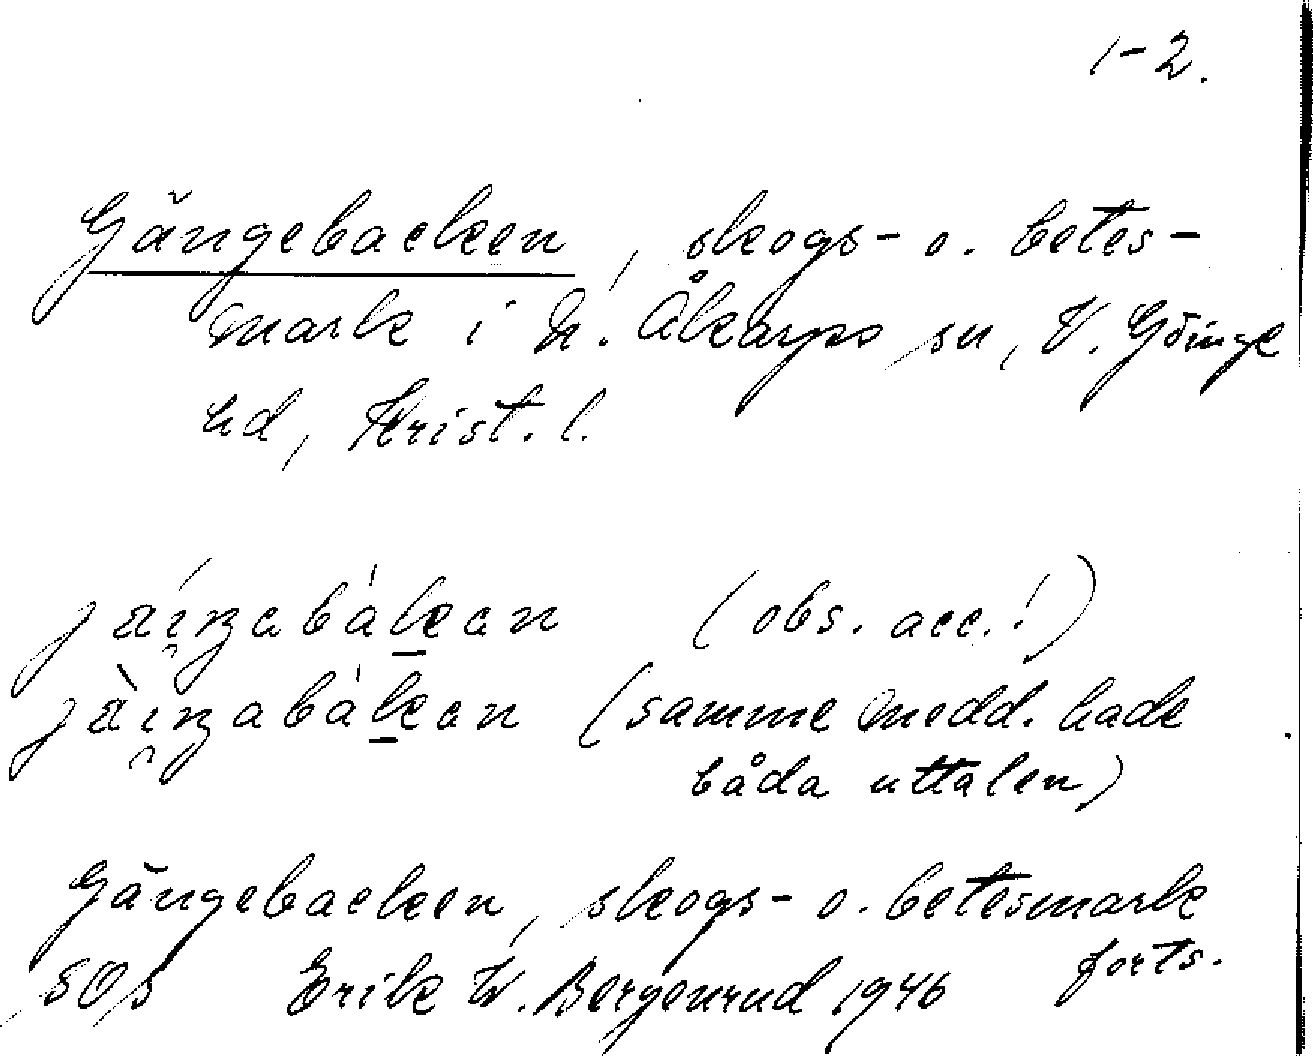 1-2.
Gängebacken, skogs- o. betes-
mark i N. Åkarps sn, V. Göinge
hd, Krist. l.
(obs. acc.!)
(samme medd. hade
båda uttalen)
Gängebacken, skogs- o. betesmark
forts.
SOS Erik W. Bergenrud 1946